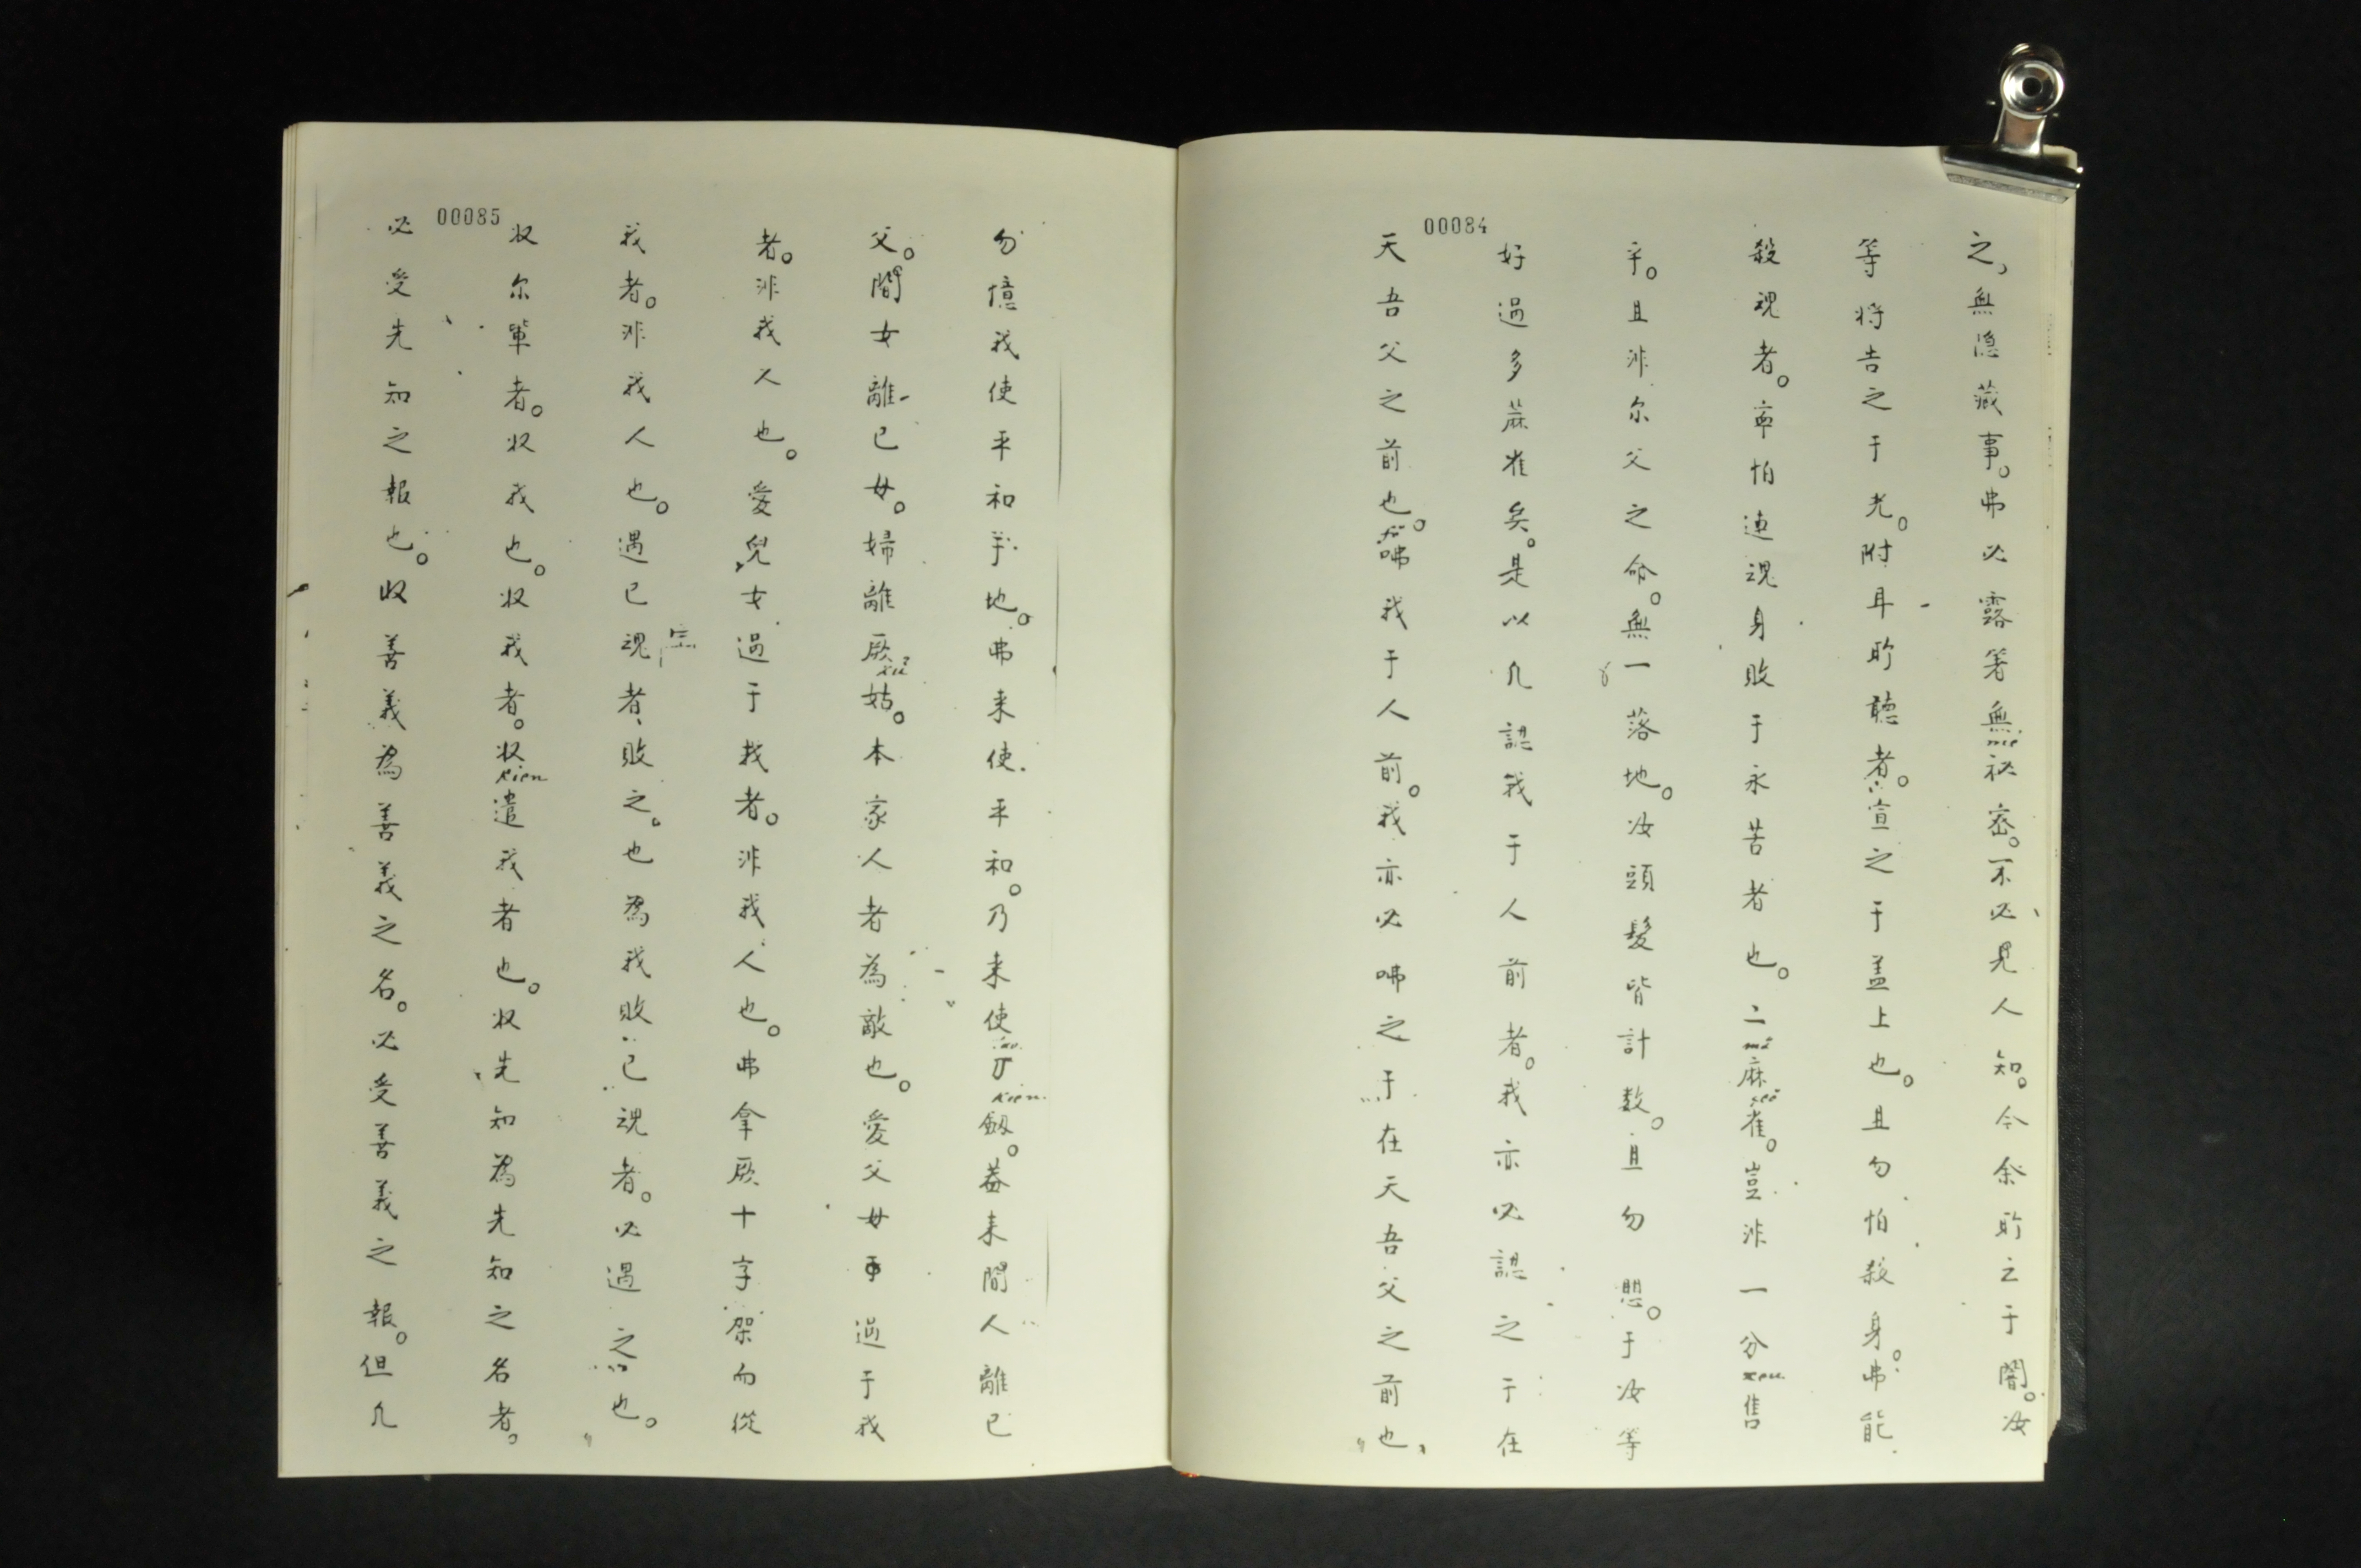 00084
之，無隐藏事。弗必露著無祕密。不必見人知。今余所之于闇。汝
mé
等将告之于光。附耳所聽者。宣之于盖上也。且勿怕殺身。弗能
殺魂者。寧怕連魂身敗于永苦者也。二麻雀。豈非一分售
mâ
xeu
乎。且非尔父之命。無一落地。汝頭髮皆計数。且勿愳。于汝等
好過多蔴雀矣。是以凢認我于人前者。我亦必認之于在
天吾父之前也。咈我于人前。我亦必咈之于在天吾父之前也，
00085
勿憶我使平和乎地。弗来使平和。乃来使刀劔。葢来間人離已
kien
父。間女離已母。婦離厥姑。本家人者為敵也。愛父母過于我
者。非我人也。愛兒女過于我者。非我人也。弗拿厥十字架而從
我者。非我人也。遇已魂者、敗之。也為我敗已魂者。必遇之也。
収尔輩者。収我也。収我者。収遣我者也。収先知為先知之名者。
kien
必受先知之報也。收善義為善義之名。必受善義之報。但凢